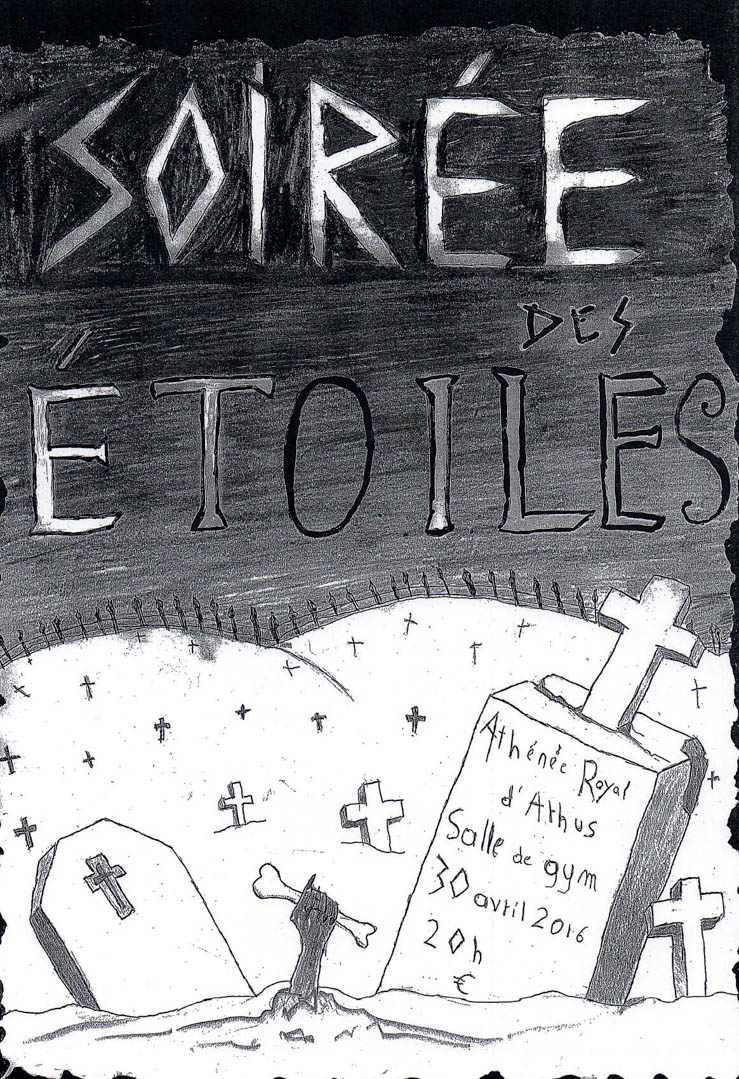 SOIRÉE
DES
ÉTOILES
Athénée Royal
d'Athus
Salle de gym
30 avril 2016
20h
€